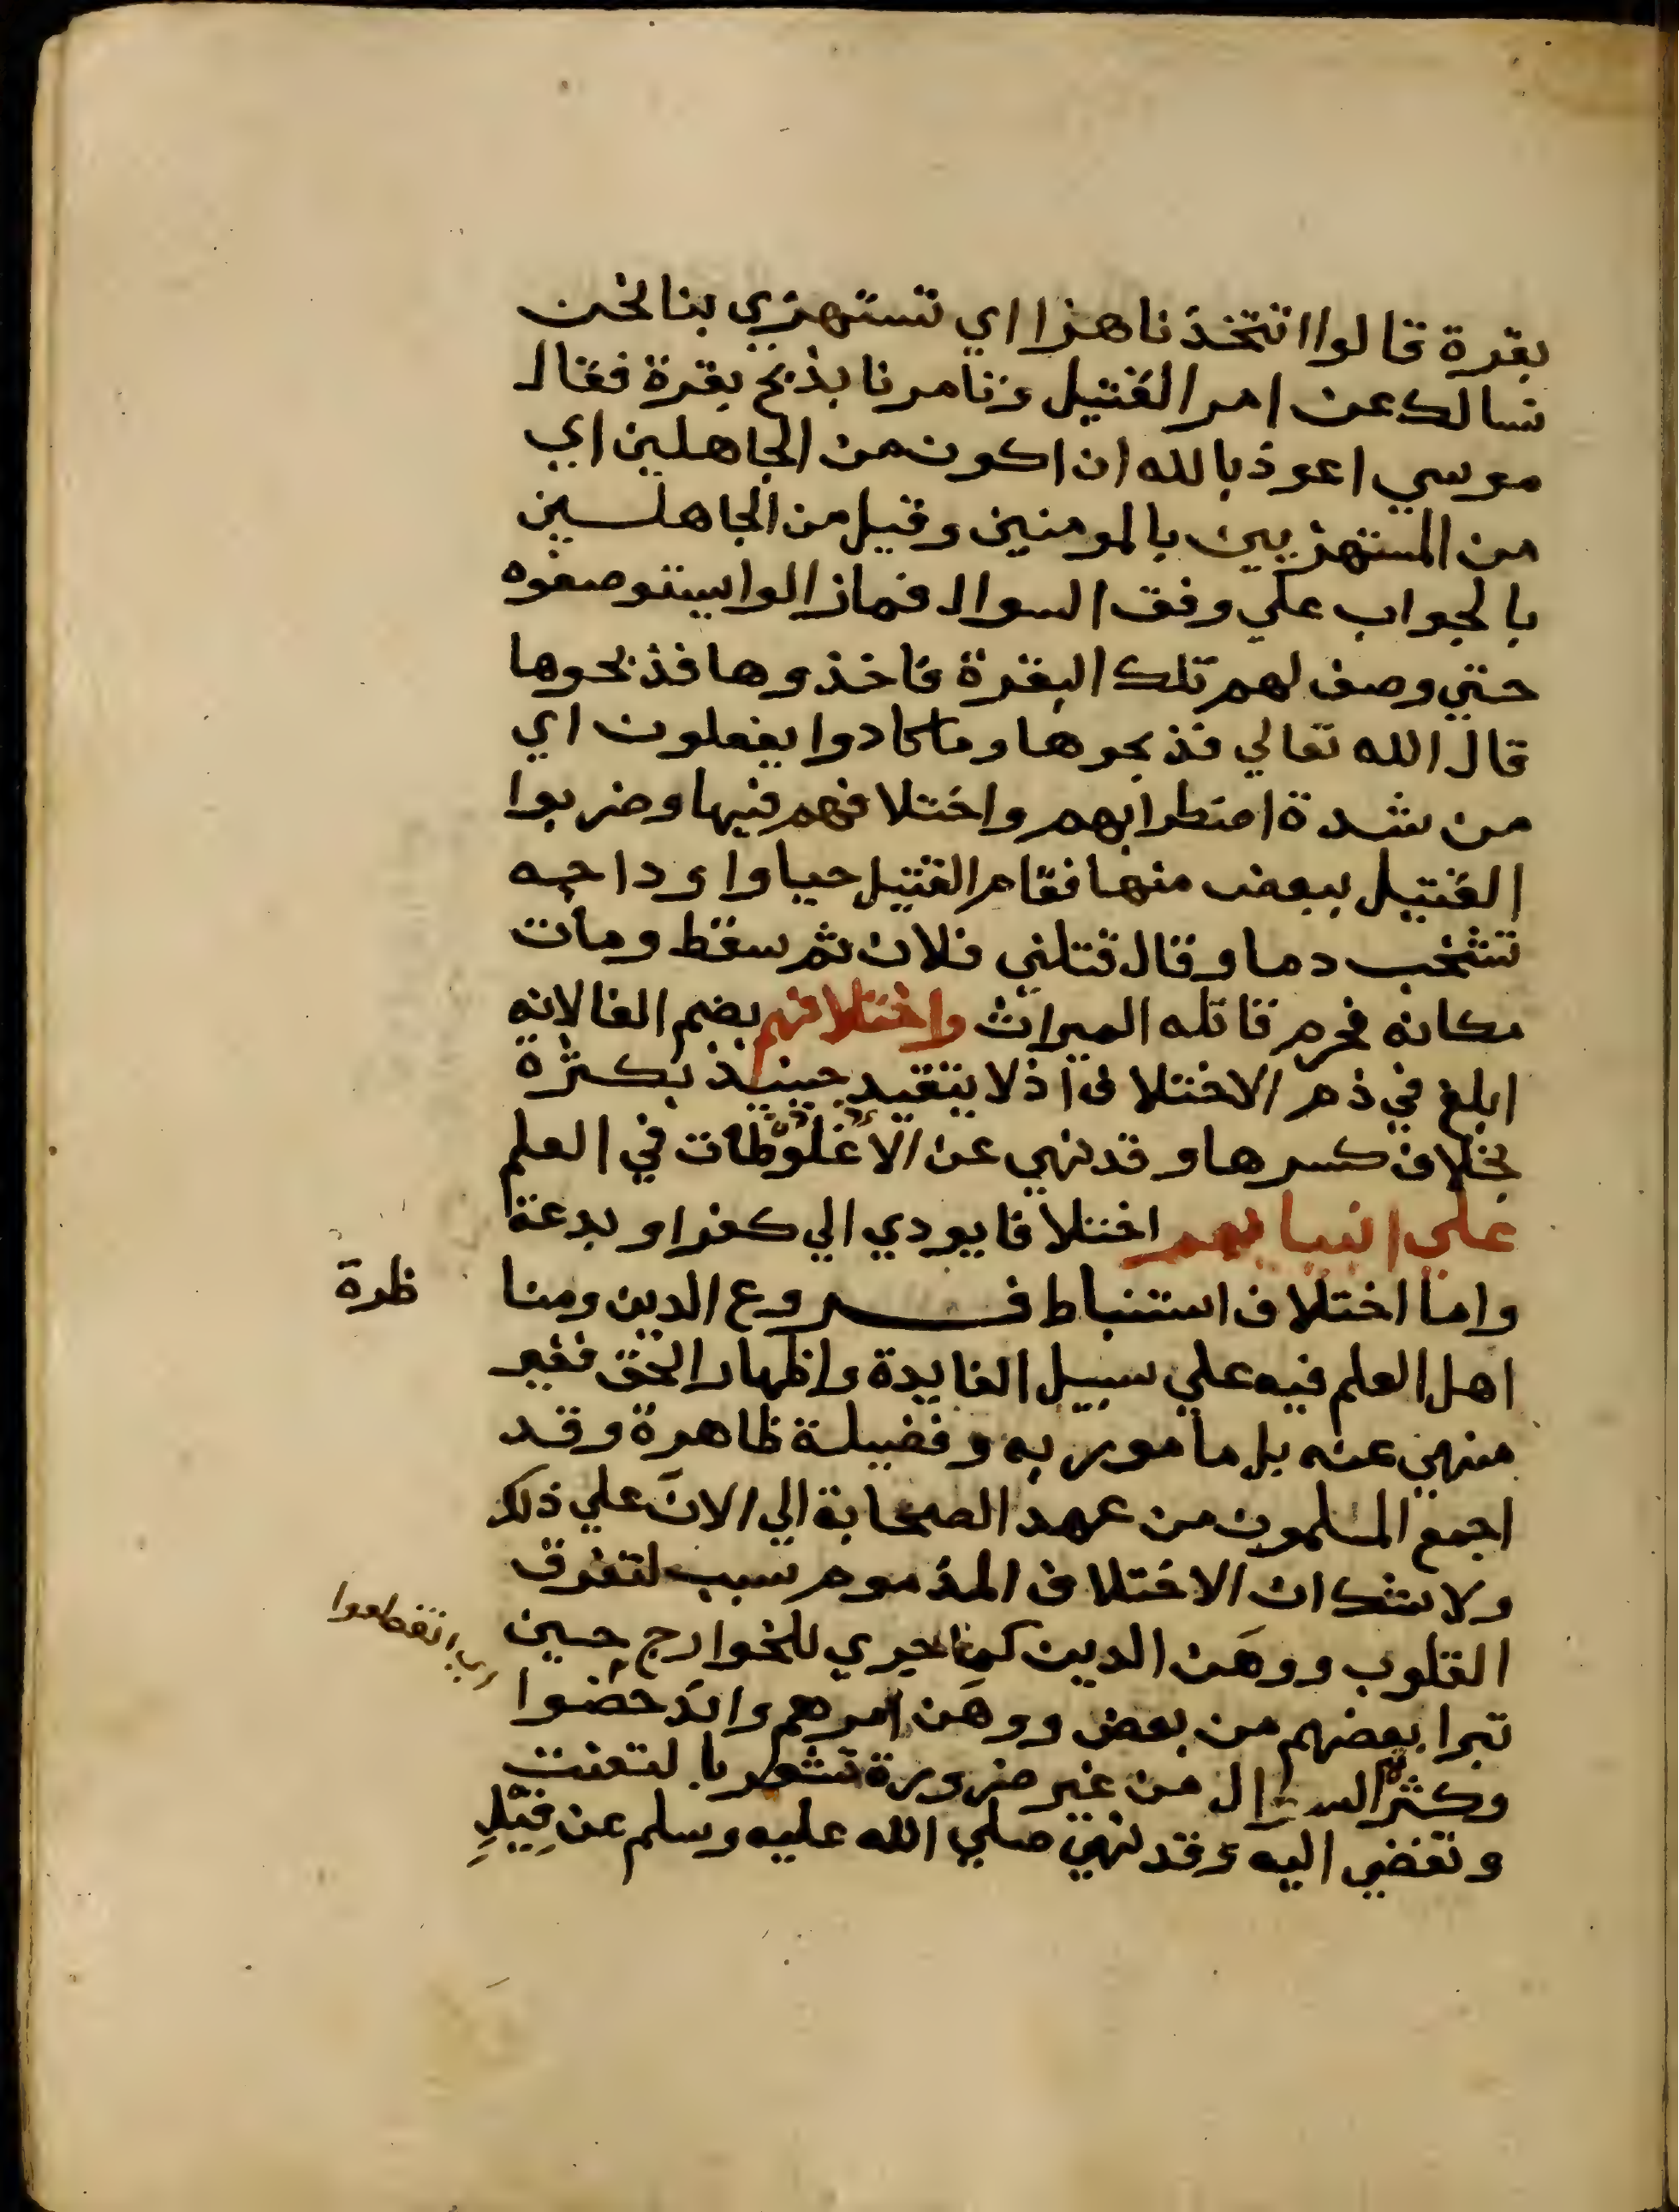 بقرة قالوا اتتخذنا هزا اي تستهزي بنا نحن
نسالك عن امر القتيل وتامرنا بذبح بقرة فقال
موسي اعوذ بالله ان اكون من الجاهلين اي
من المستهزيين بالمومنين وقيل من الجاهلين
بالجواب علي وفق السوال فمازالوا يستوصفوه
حتي وصف لهم تلك البقرة فاخذوها فذبحوها
قال الله تعالي فذبحوها وما كادوا يفعلون اي
من شدة اضطرابهم واختلافهم فيها وضربوا
القتيل ببعض منها فقام القتيل حيا واوداجه
تشخب دما وقال قتلني فلان ثم سقط ومات
مكانه فحرم قاتله الميراث واختلافهم بضم الفا لانه
ابلغ في ذم الاختلاف اذ لا يتقيد حينيذ بكثرة
بخلاف كسرها وقد نهي عن الاغلوطات في العلم
علي انبيايهم اختلافا يودي الي كفر او بدعة
واما اختلاف استنباط فروع الدين ومنا ظرة
اهل العلم فيه علي سبيل الفايدة واظهار الحق فغير
منهي عنه بل مامور به وفضيلة ظاهرة وقد
اجمع المسلمون من عهد الصحابة الي الان علي ذلك
ولا شك ان الاختلاف المذموم سبب لتفرق
القلوب ووهن الدين كما جري للخوارج حين
تبرا بعضهم من بعض ووهن امرهم واندحضوا
اي انقطعوا
وكثرة السوال من غير ضرورة تشعر بالتعنت
وتفضي اليه وقد نهي صلي الله عليه وسلم عن قيل